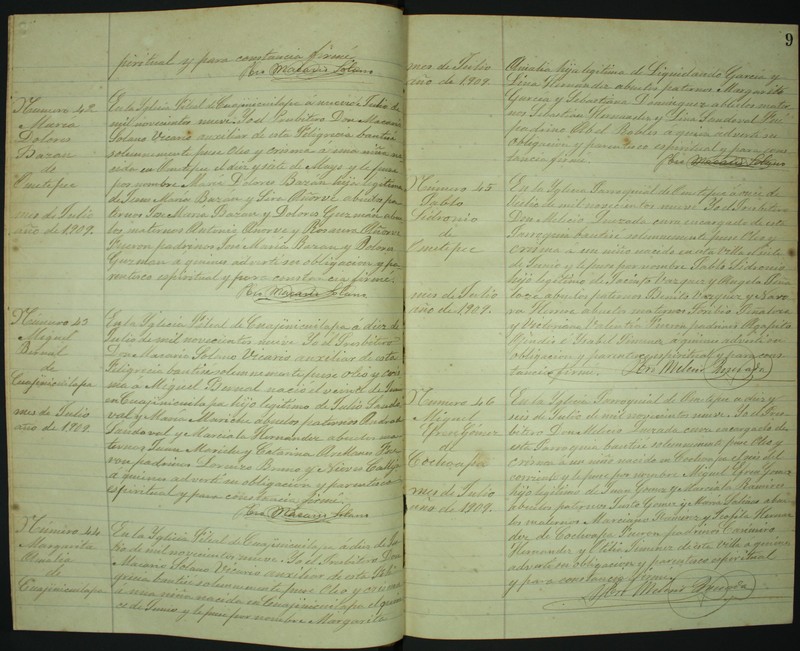 piritual y para constancia firmé.
Pro Macario Solano
Numero 42
Maria
Dolores
Bazan
de
Ometepec
mes de Julio
año de 1909.
En la Iglesia Filial de Cuajinicuilapa á Julio de
mil novecientos nueve Yo el Presbitero Don Macario
Solano Vicario auxiliar de esta Feligresia bautisé
solemnemente puse Oleo y crisma á una niña na
cida en Ometepec el diez y siete de Mayo y le puse
por nombre Maria Dolores Bazán hija legitima
de Juan Maria Bazan y abuelos pa
ternos José Maria Bazan y Dolores Guzmán abue
los maternos Antonio Añorve y
Fueron padrinos José Maria Bazan y Dolores
Guzman a quienes advertí su obligacion y pa
rentesco espiritual y para constancia firmé.
Pro Macario Solano
Numero 43
Miguel
Bernal
de
Cuajinicuilapa
mes de Julio
año de 1909.
En la Iglesia Filial de Cuajinicuilapa á diez de
Julio de mil novecientos nueve Yo el Presbitero
Don Macario Solano Vicario auxiliar de esta
Feligresia bautisé solemnemente puse oleo y cris
ma á Miguel Bernal nació el veinte de
en Cuajinicuilapa hijo legitimo de Julio Sando
val y Maria abuelos paternos
Sandoval y Marciala Hernandez abuelos ma
ternos y Catarina Fue
ron padrinos Lorenzo y Nieves
a quienes advertí su obligacion y parentesco
espiritual y para constancia firmé.
Pro Macario Solano
Numero 44
Margarita
Amalia
de
Cuajinicuilapa
En la Iglesia Filial de Cuajinicuilapa á diez de Ju
lio de mil novecientos nueve Yo el Presbitero Don
Macario Solano Vicario auxiliar de esta Feli
gresia bautisé solemnemente puse Oleo y crisma
á una niña nacida en Cuajinicuilapa el quin
ce de Junio y le puse por nombre Margarita
9
mes de Julio
año de 1909.
Amalia hija legitima de Garcia y
Lina Hernandez abuelos paternos Margarito
Garcia y Sebastiana Dominguez abuelos mater
nos Sebastian Hernandez y Lina Sandoval Fué
padrino Abel Robles á quien advertí su
obligacion y parentesco espiritual y para cons
tancia firmé.
Pro Macario Solano
Numero 45
Pablo
Sidronio
de
Ometepec
mes de Julio
año de 1909.
En la Iglesia Parroquial de Ometepec á de
Julio de mil novecientos nueve Yo el Presbitero
Don Melecio cura encargado de esta
Parroquia bautisé solemnemente puse Oleo y
crisma á un niño nacido en esta villa el siete
de Junio y le puse por nombre Pablo Sidronio
hijo legitimo de Jacinto Vazquez y Angela Peña
loza abuelos paternos Benito Vazquez y
abuelos maternos Toribio Peñaloza
y Victoriana Valentin Fueron padrinos Agapito
é Isabel á quienes advertí su
obligacion y parentesco espiritual y para cons
tancia firmé.
José Melecio
Numero 46
Miguel
Efren Gómez
de
Cochoapa
mes de Julio
año de 1909.
En la Iglesia Parroquial de Ometepec á diez y
seis de Julio de mil novecientos nueve Yo el Pres
bitero Don Melecio cura encargado de
esta Parroquia bautisé solemnemente puse Oleo y
crisma á un niño nacido en Cochoapa el seis del
corriente y le puse por nombre Miguel Efren Gomez
hijo legitimo de Juan Gomez y Marciala Ramirez
abuelos paternos Justo Gomez y Maria abue
los maternos Marciano Ramirez y Teofila Hernan
dez de Cochoapa Fueron padrinos Casimiro
Hernandez y Jimenez de esta villa á quienes
advertí su obligacion y parentesco espiritual
y para constancia firmé.
José Melecio